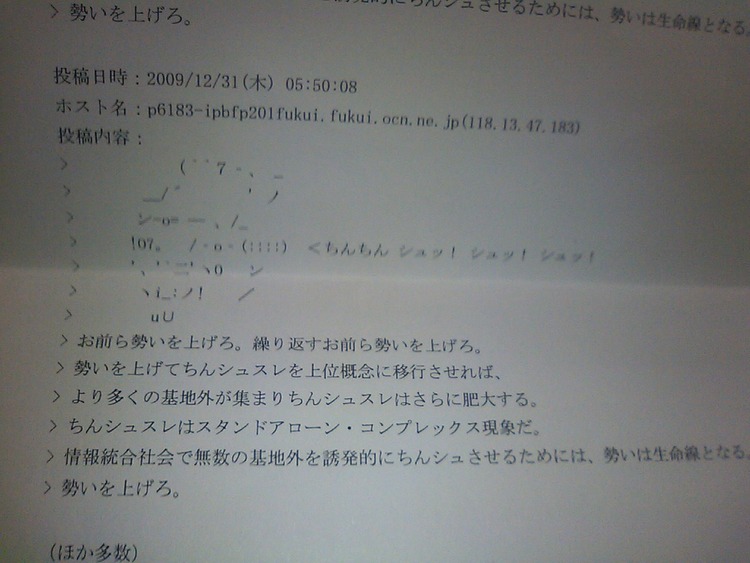 誘発的にちんシュさせるためには、勢いは生命線となる。
> 勢いを上げろ。
投稿日時：2009/12/31(木) 05:50:08
ホスト名：p6183-ipbfp201fukui.fukui.ocn.ne.jp(118.13.47.183)
投稿内容：
> (´｀7 -、 _
> __/´ ' ﾉ
> ン-o= ― 、/_
> !07。 /‐o‐(::::) ＜ちんちん シュッ! シュッ! シュッ!
> '、'二'ヽO ン
> ヽi_:ノ! ／
> u∪
> お前ら勢いを上げろ。繰り返すお前ら勢いを上げろ。
> 勢いを上げてちんシュスレを上位概念に移行させれば、
> より多くの基地外が集まりちんシュスレはさらに肥大する。
> ちんシュスレはスタンドアローン・コンプレックス現象だ。
> 情報統合社会で無数の基地外を誘発的にちんシュさせるためには、勢いは生命線となる。
> 勢いを上げろ。
(ほか多数)